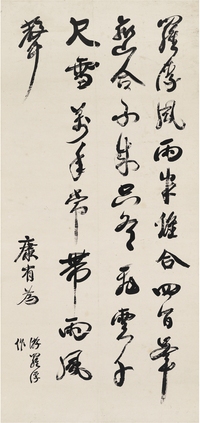 羅浮風雨半離合四百峯
巒合不成只有飛雲千
尺雪萬年常帶雨風
聲
康有為
游羅浮
作